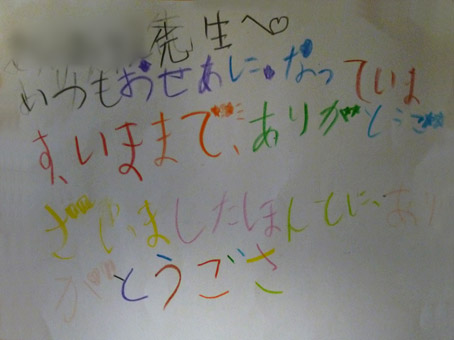 先生へ♡
いつもおせあになっていま
す、いままで、ありがとうご
ざいましたほんとにあり
がとうござ